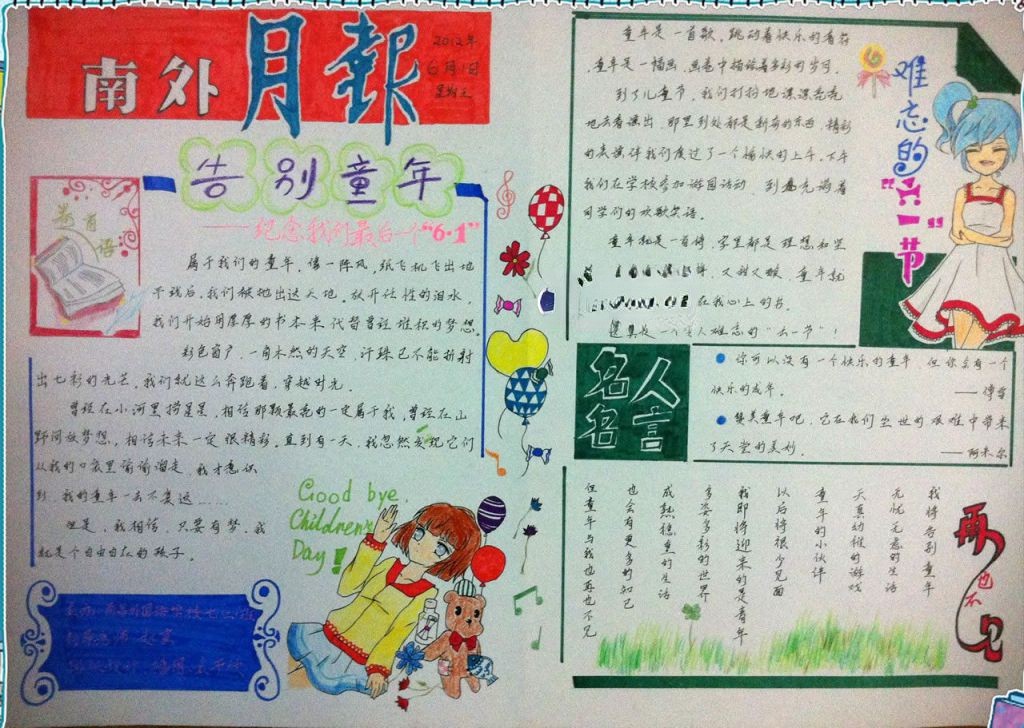 南外月報
2012年
6月1日
星期五
告别童年
——纪念我们最后一个"6·1"
属于我们的童年，像一阵风，纸飞机飞出地
平线后，我们被抛出这天地。放开任性的泪水，
我们开始用厚厚的书本来代替曾经堆积的梦想。
彩色窗户，一角未然的天空，汗珠已不能折射
出七彩的光芒，我们就这么奔跑着，穿越时光。
曾经在小河里捞星星，相信那颗最亮的一定属于我，曾经在山
野间放梦想，相信未来一定很精彩，直到有一天，我忽然发现它们
从我的口袋里偷偷溜走，我才意识
到，我的童年一去不复返……
但是，我相信，只要有梦，我
就是个自由自在的孩子。
Good bye,
Children's
Day!
童年是一首歌，跳动着快乐的音符，
童年是一幅画，画卷中描绘着多彩的岁月。
到了儿童节，我们打扮地漂漂亮亮
地去看演出，那里到处都是新奇的东西，精彩
的表演伴我们度过了一个愉快的上午，下午
我们在学校参加游园活动，到处充满着
同学们的欢歌笑语。
童年就是一首诗，字里都是理想和坚
又甜又酸，童年就
在我心上的书。
这真是一个令人难忘的"六一节"！
难忘的
"六一"
节
名人
名言
你可以没有一个快乐的童年，但你会有一个
快乐的成年。
——傅雷
赞美童年吧，它在我们尘世的艰难中带来
了天堂的美妙。
——阿米尔
再也不见
我将告别童年
无忧无虑的生活
天真幼稚的游戏
童年的小伙伴
以后将很少见面
我即将迎来的是青年
多姿多彩的世界
成熟稳重的生活
也会有更多的知己
但童年与我也再也不见